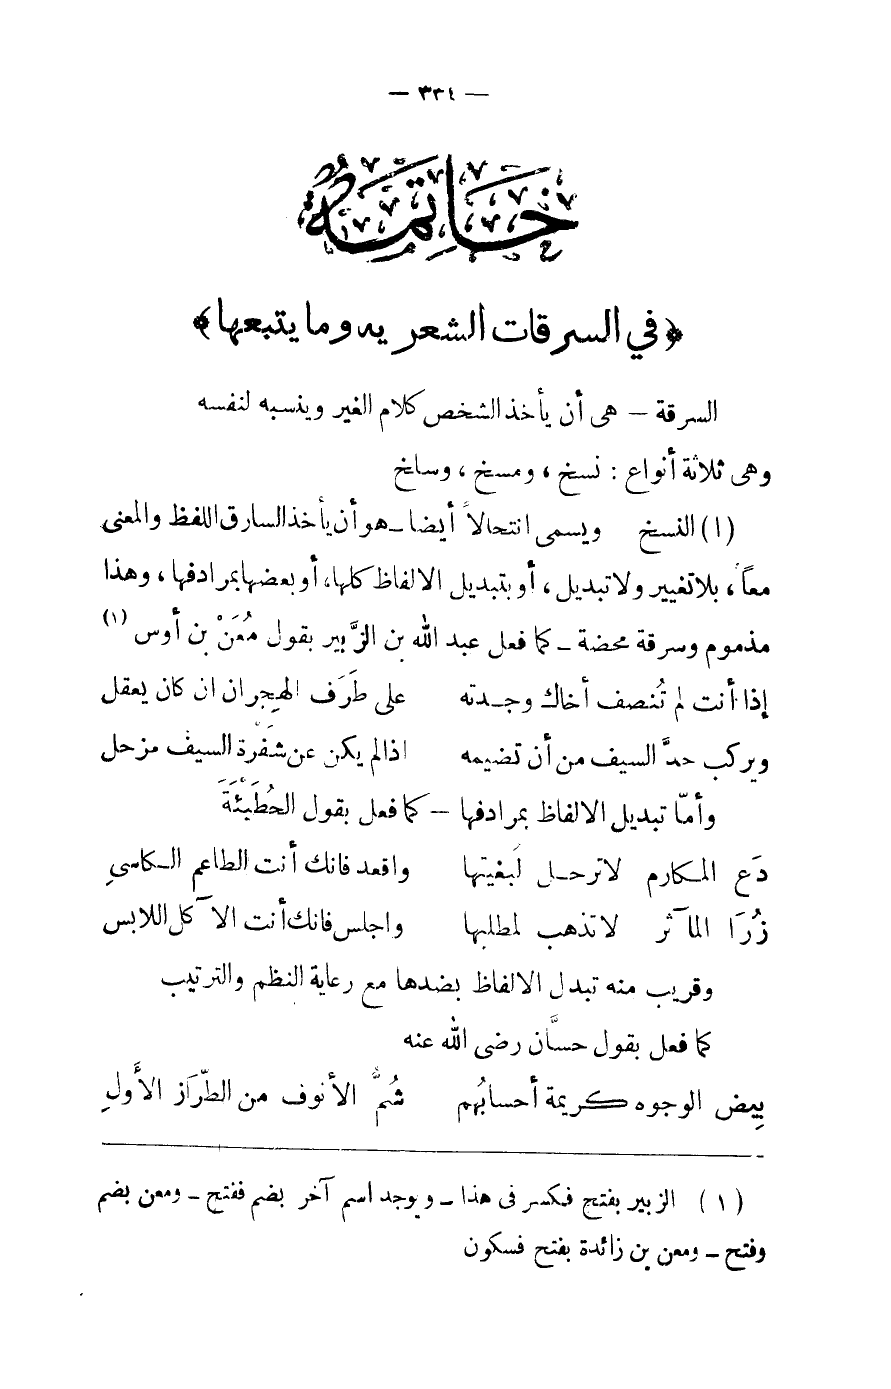 — ٣٣٤ —
خاتمة
﴿في السرقات الشعريه وما يتبعها﴾
السرقة – هى أن يأخذ الشخص كلام الغير وينسبه لنفسه
وهى ثلاثة أنواع : نسخ ، ومسخ ، وسلخ
(١) النسخ ويسمى انتحالاً أيضا – هو أن يأخذ السارق اللفظ والمعنى
معاً ، بلا تغيير ولا تبديل ، أو بتبديل الالفاظ كلها، أو بعضها بمرادفها ، وهذا
مذموم وسرقة محضة – كما فعل عبد الله بن الزَّبير بقول مُعَنْ بن أوس (١)
إذا أنت لم تُنصف أخاك وجدته على طَرَف الهجران ان كان يعقل
ويركب حدَّ السيف من أن تضيمه اذا لم يكن عن شَفْرة السيف مزحل
وأمّا تبديل الالفاظ بمرادفها – كما فعل بقول الحُطَيْئَة
دَع المكارم لا ترحل لبغيتها واقعد فانك أنت الطاعم الكاسى
ذُرَا المآثر لا تذهب لمطلبها واجلس فانك أنت الآكل اللابس
وقريب منه تبدل الالفاظ بضدها مع رعاية النظم والترتيب
كما فعل بقول حسَّان رضى الله عنه
بِيض الوجوه كريمة أحسابُهم شُمُّ الأنوف من الطّرَاز الأَولِ
(١) الزبير بفتح فكسر فى هذا – ويوجد اسم آخر بضم ففتح – ومعن بضم
وفتح – ومعن بن زائدة بفتح فسكون